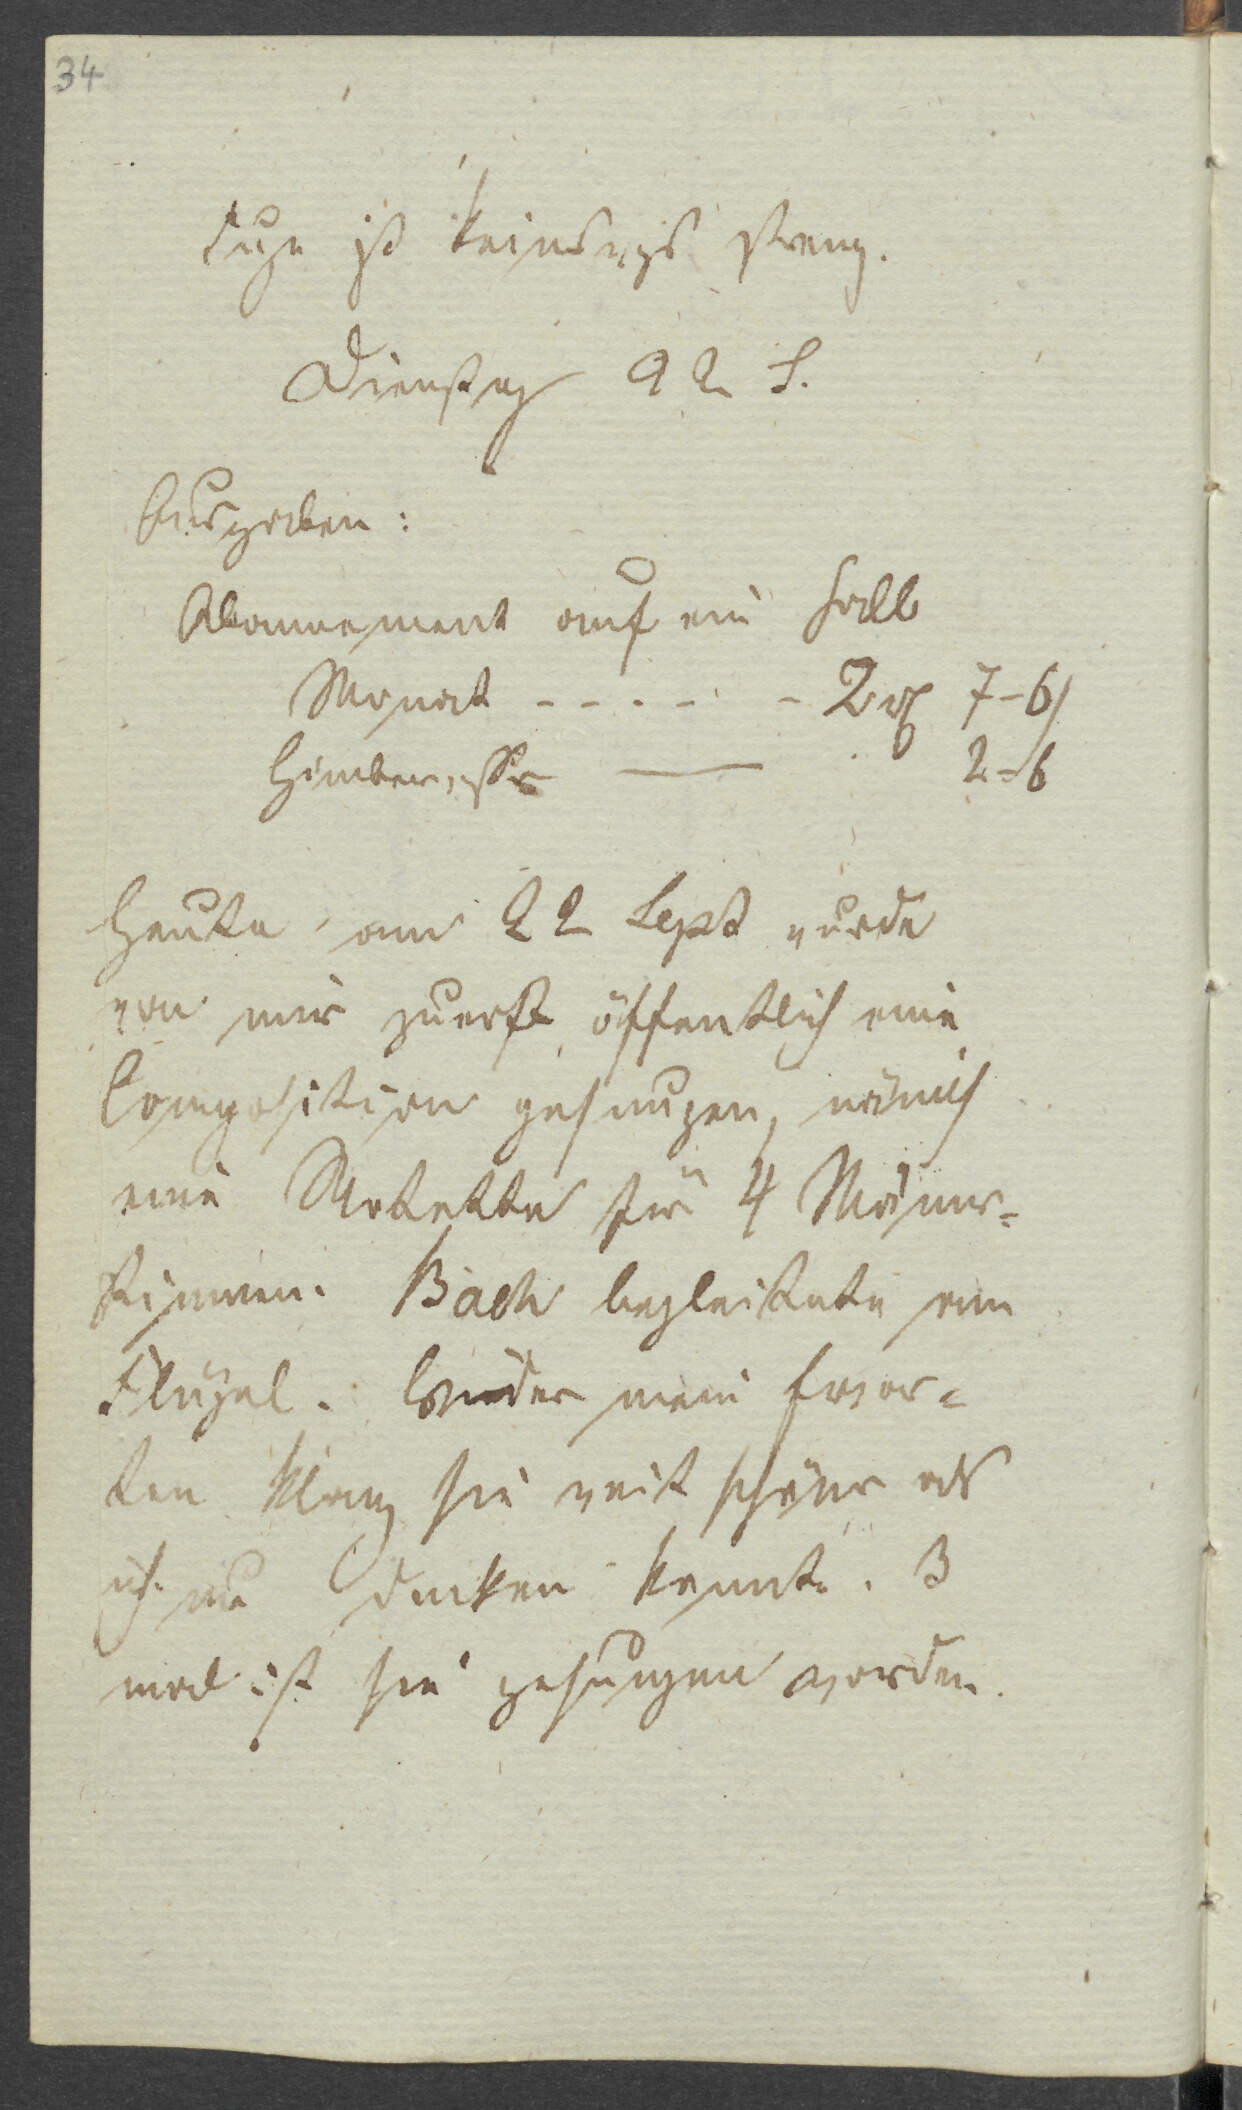 34
Fuge ist keineswgs streng.
Dienstag 22 S.
Ausgaben:
Abonnement auf ein halb
Monat - - - - - 2 rf 7-6
Himberessr — 2-6
Heute am 22 Sept wurde
von mir zuerst öffentlich eine
Composition gesungen, nämlich
eine Motette für 4 Männer=
stimmen. Bach begleitete am
Flügel. Wieder mein Erwar=
ten klang sie weit schöner als
ich nur denken konnte. 3
mal ist sie gesungen worden.